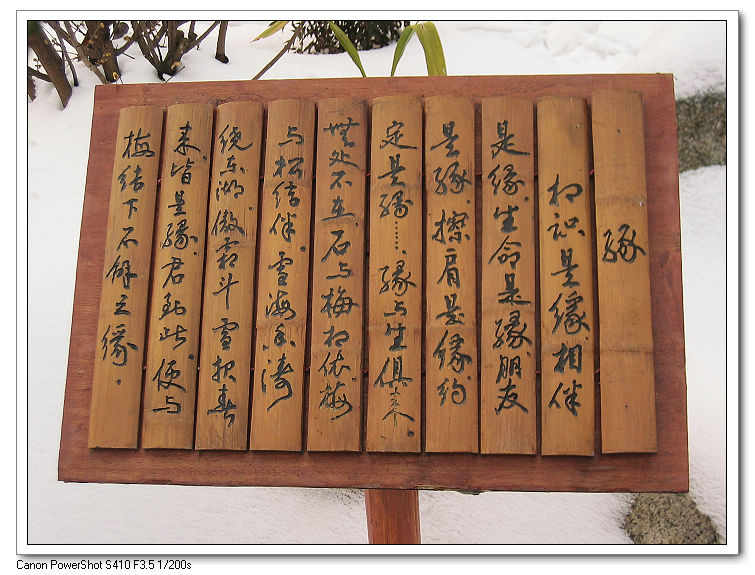 缘
相识是缘.相伴
是缘.生命是缘.朋友
是缘.擦肩是缘.约
定是缘……缘与生俱来.
無处不在.石与梅相依.梅
与松结伴.雪海香涛
绕东湖.傲霜斗雪报春
来.皆是缘.君到此.便与
梅结下不解之缘.
Canon PowerShot S410 F3.5 1/200s